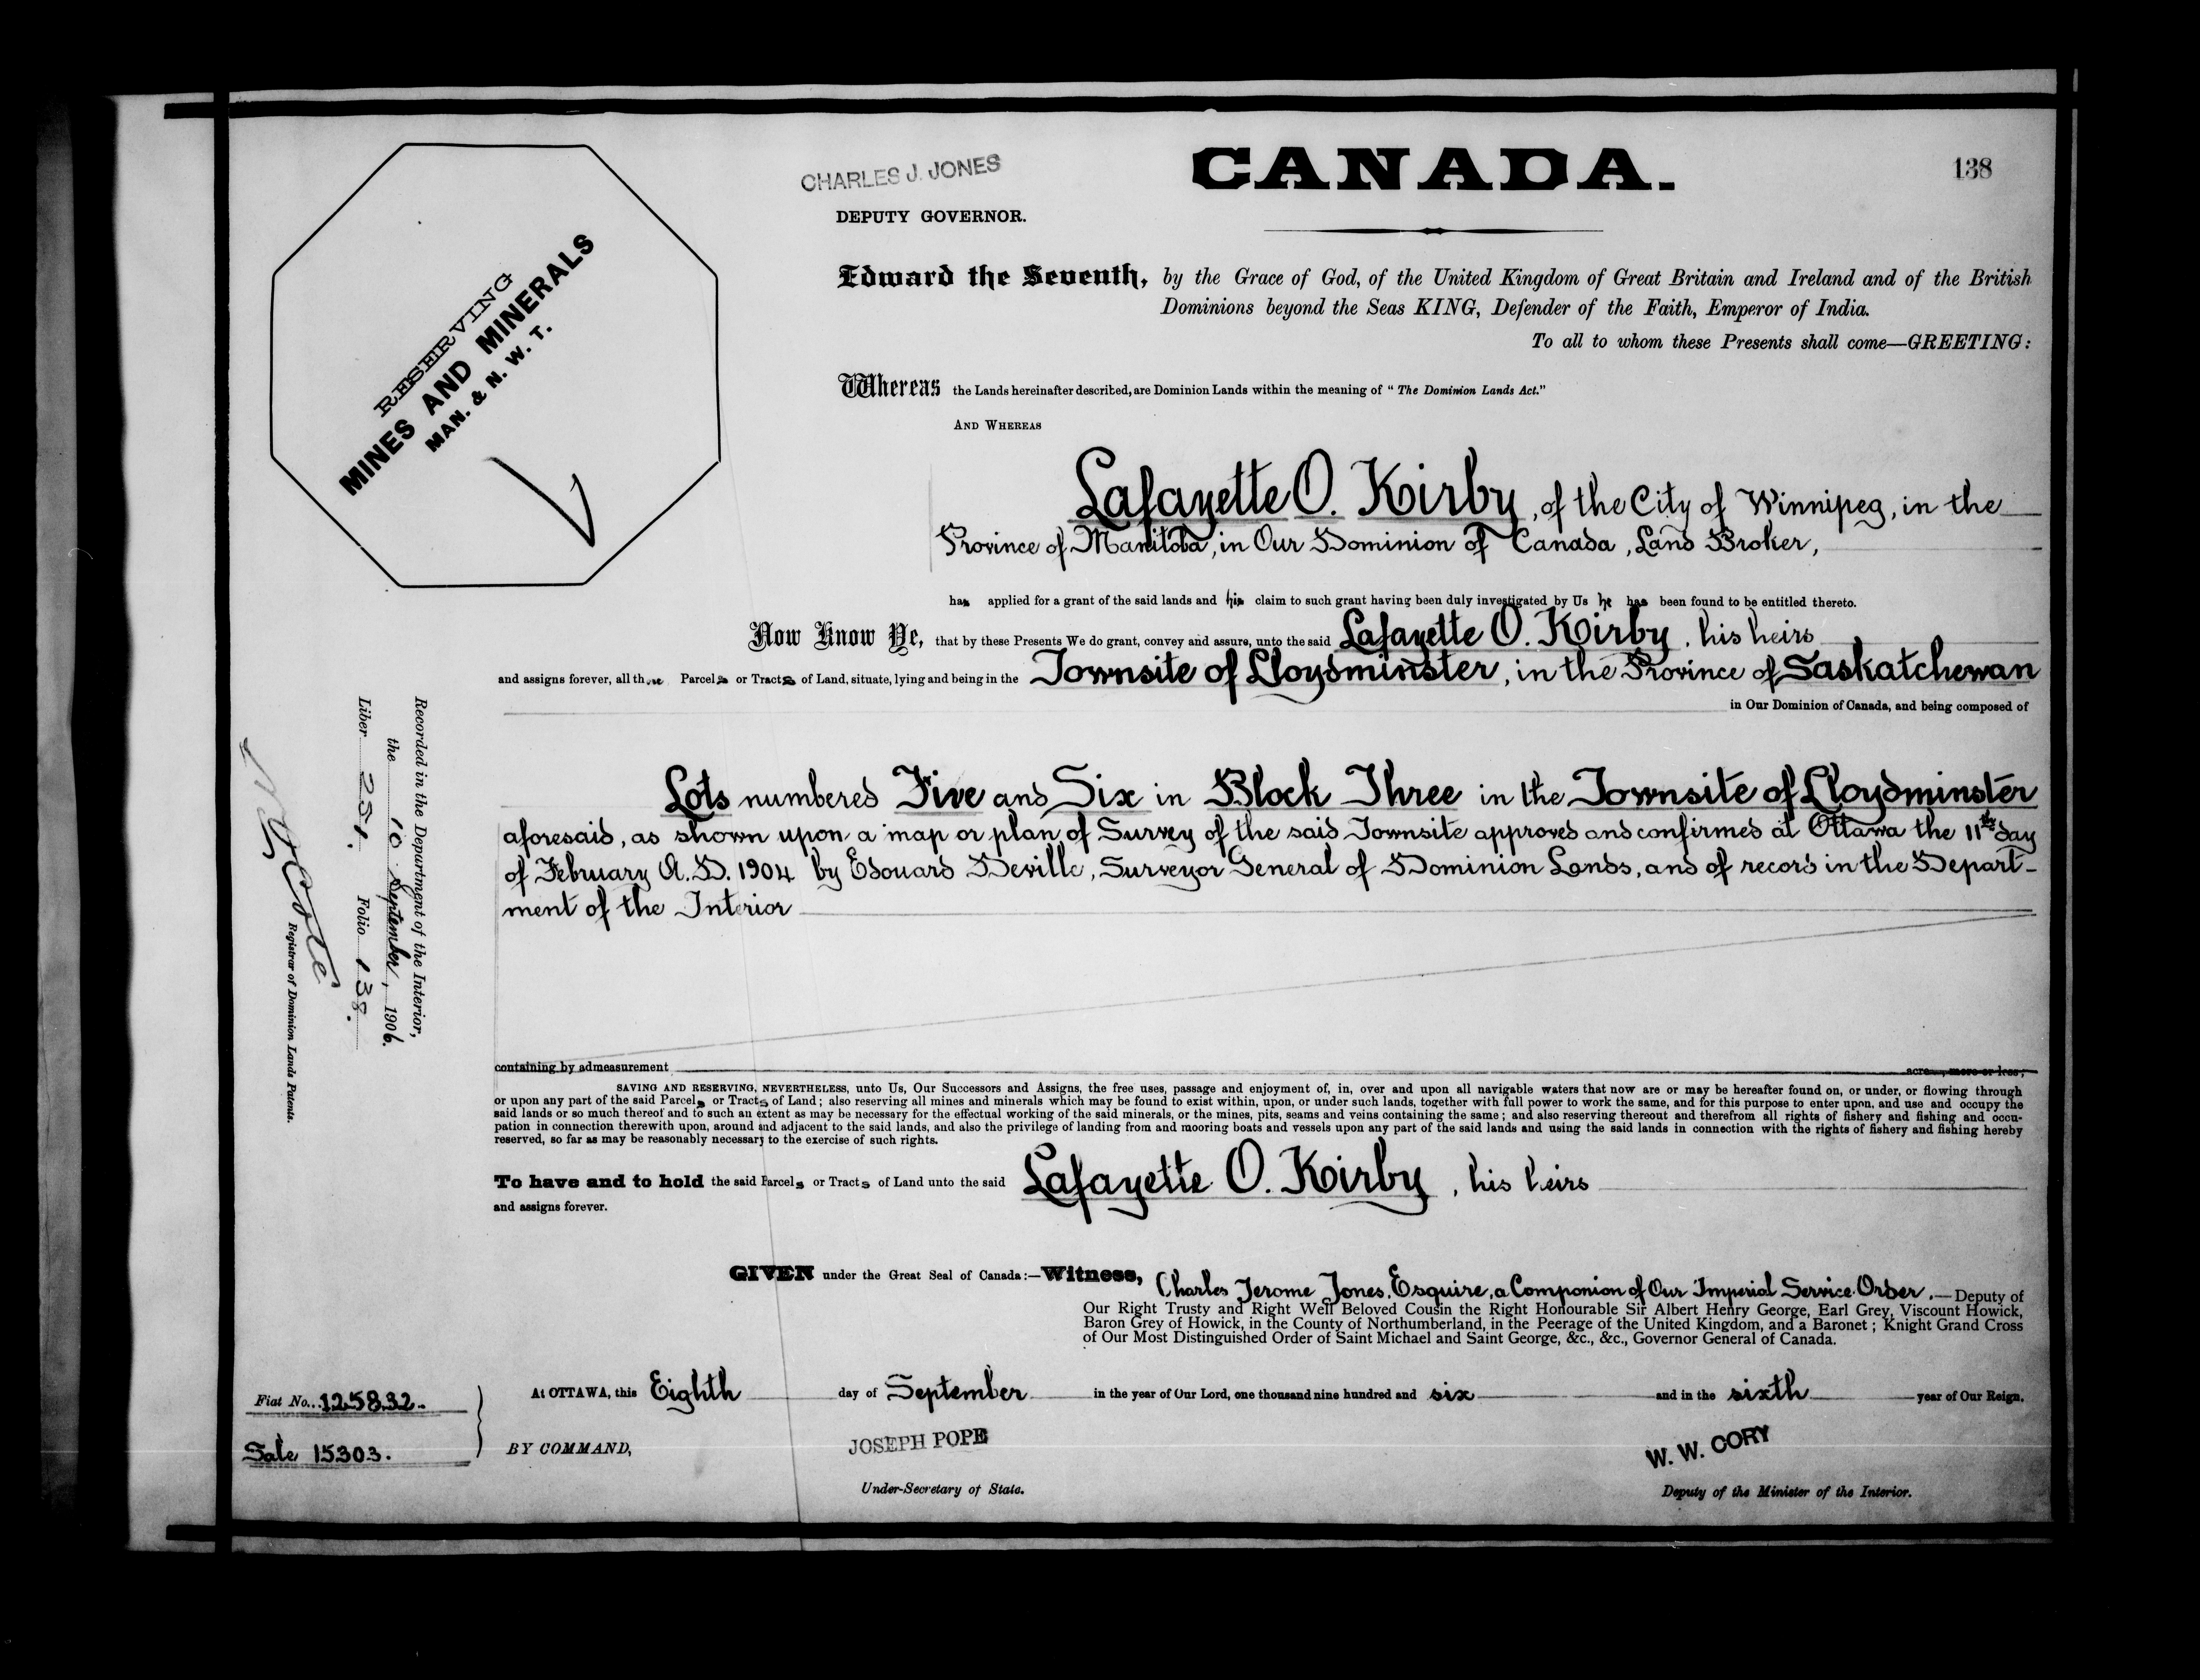 CHARLES J. JONES
DEPUTY GOVERNOR.
CANADA.
138
RESERVING
MINES AND MINERALS
MAN. & N. W. T.
Edward the Seventh, by the Grace of God, of the United Kingdom of Great Britain and Ireland and of the British
Dominions beyond the Seas KING, Defender of the Faith, Emperor of India.
To all to whom these Presents shall come—GREETING:
Whereas the Lands hereinafter described, are Dominion Lands within the meaning of "The Dominion Lands Act."
AND WHEREAS
Lafayette O. Kirby, of the City of Winnipeg, in the
Province of Manitoba, in Our Dominion of Canada, Land Broker,
has applied for a grant of the said lands and his claim to such grant having been duly investigated by Us he has been found to be entitled thereto.
Now Know Ye, that by these Presents We do grant, convey and assure, unto the said Lafayette O. Kirby, his heirs
and assigns forever, all those Parcels or Tracts of Land, situate, lying and being in the Townsite of Lloydminster, in the Province of Saskatchewan
in Our Dominion of Canada, and being composed of
Lots numbered Five and Six in Block Three in the Townsite of Lloydminster
aforesaid, as shown upon a map or plan of Survey of the said Townsite approved and confirmed at Ottawa the 11th day
of February A.D. 1904 by Edouard Deville, Surveyor General of Dominion Lands, and of record in the Depart-
ment of the Interior
containing by admeasurement acres, more or less;
SAVING AND RESERVING, NEVERTHELESS, unto Us, Our Successors and Assigns, the free uses, passage and enjoyment of, in, over and upon all navigable waters that now are or may be hereafter found on, or under, or flowing through
or upon any part of the said Parcels or Tracts of Land; also reserving all mines and minerals which may be found to exist within, upon, or under such lands, together with full power to work the same, and for this purpose to enter upon, and use and occupy the
said lands or so much thereof and to such an extent as may be necessary for the effectual working of the said minerals, or the mines, pits, seams and veins containing the same; and also reserving thereout and therefrom all rights of fishery and fishing and occu-
pation in connection therewith upon, around and adjacent to the said lands, and also the privilege of landing from and mooring boats and vessels upon any part of the said lands and using the said lands in connection with the rights of fishery and fishing hereby
reserved, so far as may be reasonably necessary to the exercise of such rights.
To have and to hold the said Parcels or Tracts of Land unto the said Lafayette O. Kirby, his heirs
and assigns forever.
GIVEN under the Great Seal of Canada:—Witness, Charles Jerome Jones, Esquire, a Companion of Our Imperial Service Order,—Deputy of
Our Right Trusty and Right Well Beloved Cousin the Right Honourable Sir Albert Henry George, Earl Grey, Viscount Howick,
Baron Grey of Howick, in the County of Northumberland, in the Peerage of the United Kingdom, and a Baronet; Knight Grand Cross
of Our Most Distinguished Order of Saint Michael and Saint George, &c., &c., Governor General of Canada.
At OTTAWA, this Eighth day of September in the year of Our Lord, one thousand nine hundred and six and in the sixth year of Our Reign.
BY COMMAND,
JOSEPH POPE
Under-Secretary of State.
W. W. CORY
Deputy of the Minister of the Interior.
Fiat No. 125832.
Sale 15303.
Recorded in the Department of the Interior,
the 10 September, 1906.
Liber 251. Folio 138.
N O Coté
Registrar of Dominion Lands Patents.